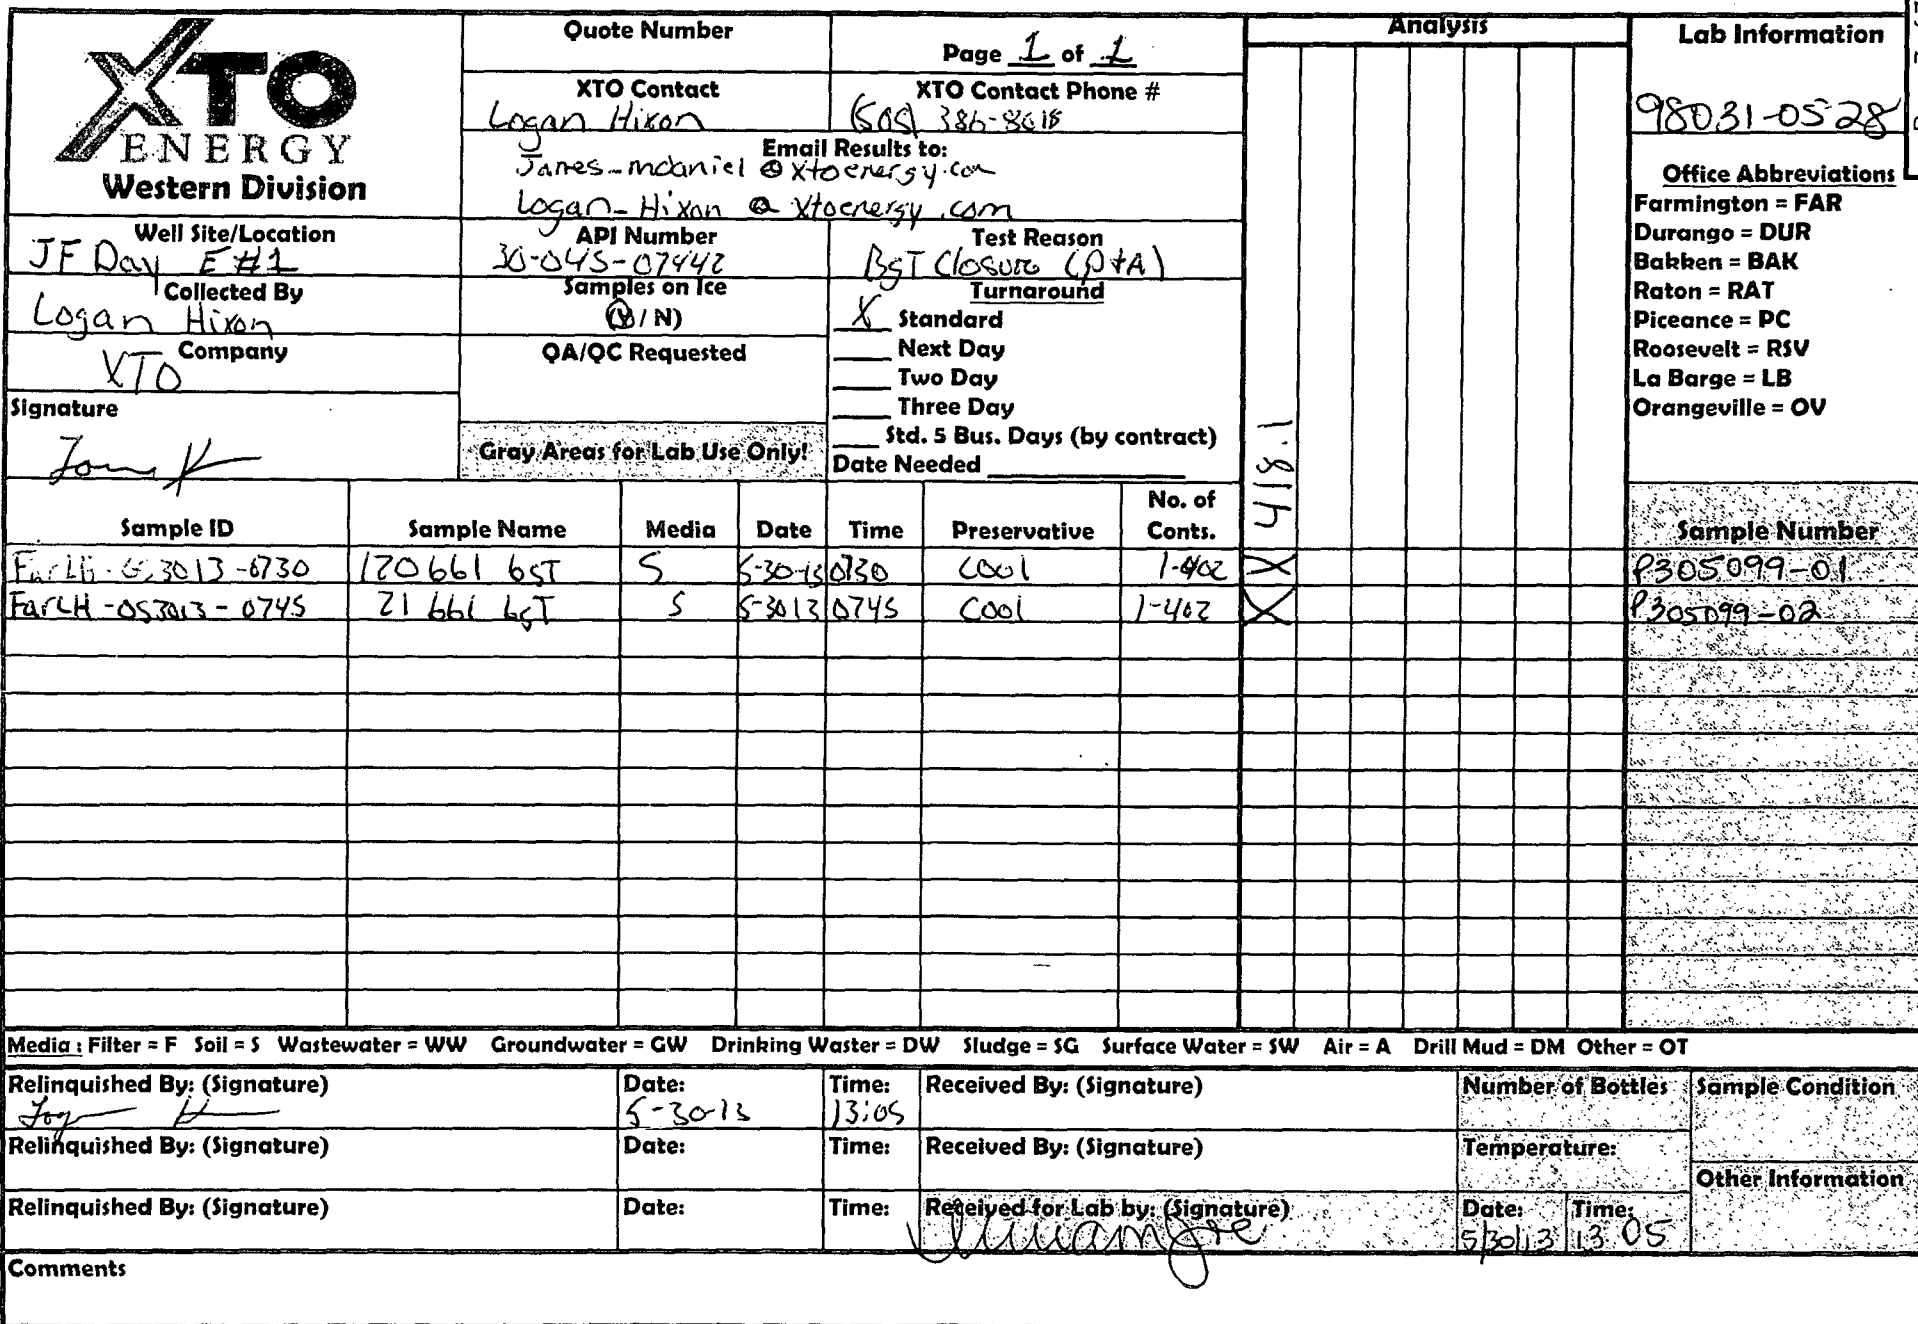 XTO
ENERGY
Western Division
Quote Number
Page 1 of 1
XTO Contact
Logan Hixon
XTO Contact Phone #
(505) 386-8018
Email Results to:
James_mcdaniel @ xtoenergy.com
Logan_Hixon @ xtoenergy.com
Well Site/Location
JF Day E #1
API Number
30-045-07442
Test Reason
BGT Closure (P+A)
Collected By
Logan Hixon
Samples on Ice
(Y / N)
Turnaround
X Standard
Next Day
Two Day
Three Day
Std. 5 Bus. Days (by contract)
Date Needed
Company
XTO
QA/QC Requested
Signature
Gray Areas for Lab Use Only!
Analysis
418.1
Lab Information
98031-0528
Office Abbreviations
Farmington = FAR
Durango = DUR
Bakken = BAK
Raton = RAT
Piceance = PC
Roosevelt = RSV
La Barge = LB
Orangeville = OV
Sample ID Sample Name Media Date Time Preservative No. of Conts. Sample Number
FarLH-053013-0730 120 bbl bGT S 5-30-13 0730 cool 1-4oz X P305099-01
FarLH-053013-0745 21 bbl bGT S 5-30 13 0745 cool 1-4oz X P305099-02
Media : Filter = F Soil = S Wastewater = WW Groundwater = GW Drinking Waster = DW Sludge = SG Surface Water = SW Air = A Drill Mud = DM Other = OT
Relinquished By: (Signature) Date: 5-30-13 Time: 13:05 Received By: (Signature)
Number of Bottles
Sample Condition
Relinquished By: (Signature) Date: Time: Received By: (Signature)
Temperature:
Other Information
Relinquished By: (Signature) Date: Time: Received for Lab by: (Signature)
Date: 5/30/13 Time: 13 05
Comments